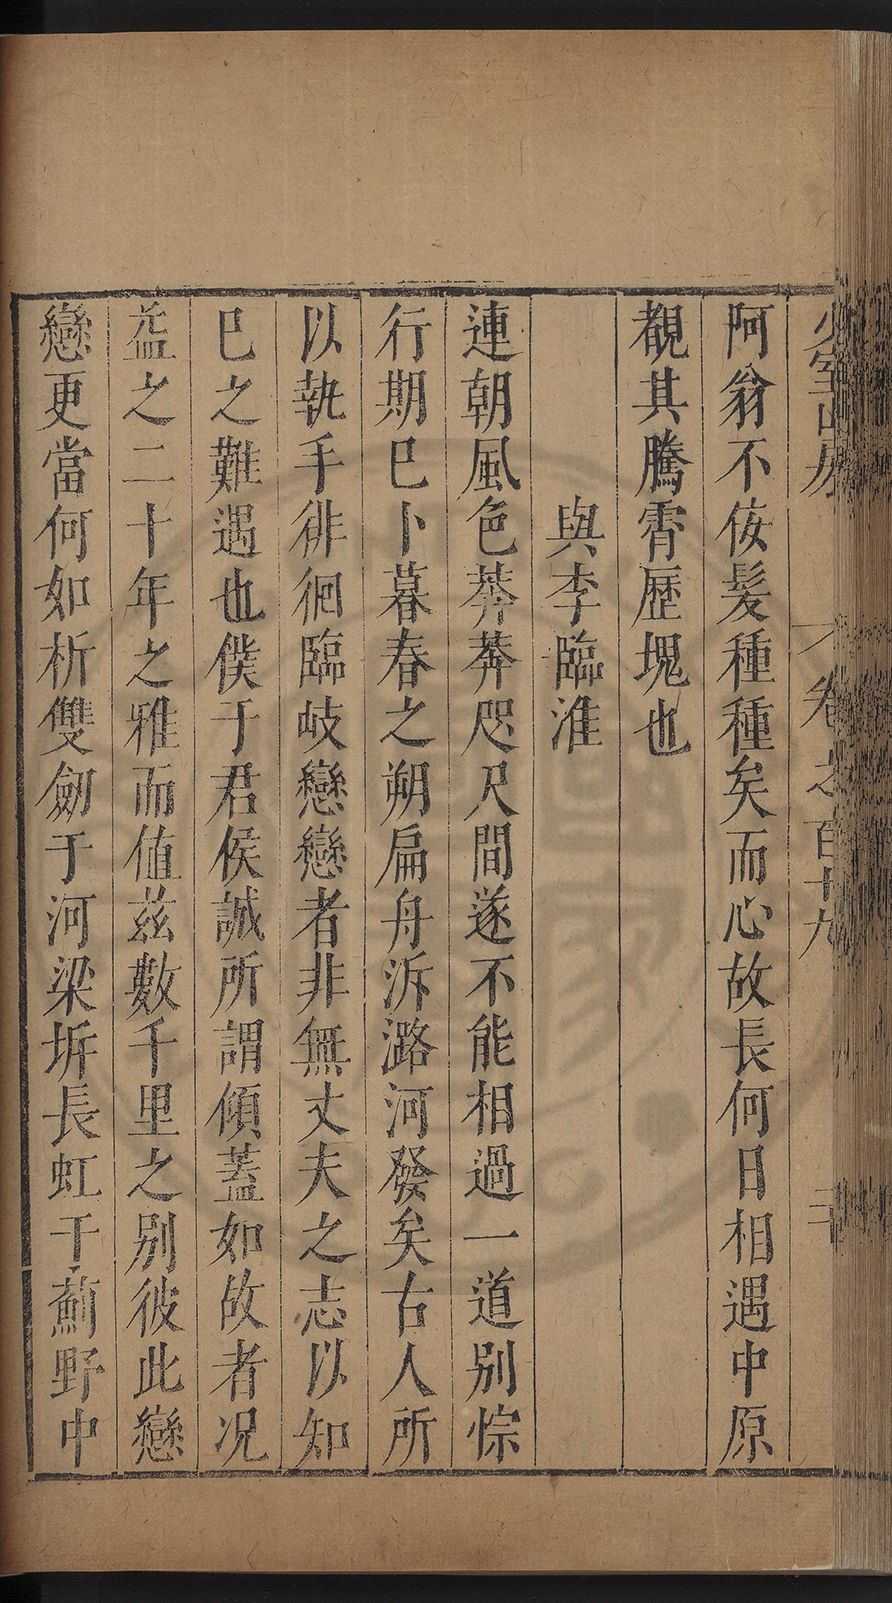 少室山房 卷之百十九 二十
阿翁不佞髮種種矣而心故長何日相遇中原
覩其騰霄歷塊也
與李臨淮
連朝風色莽莽咫尺間遂不能相過一道別悰
行期巳卜暮春之朔扁舟泝潞河發矣古人所
以執手徘徊臨岐戀戀者非無丈夫之志以知
巳之難遇也僕于君侯誠所謂傾蓋如故者况
益之二十年之雅而値兹數千里之別彼此戀
戀更當何如析雙劒于河梁坼長虹于薊野中